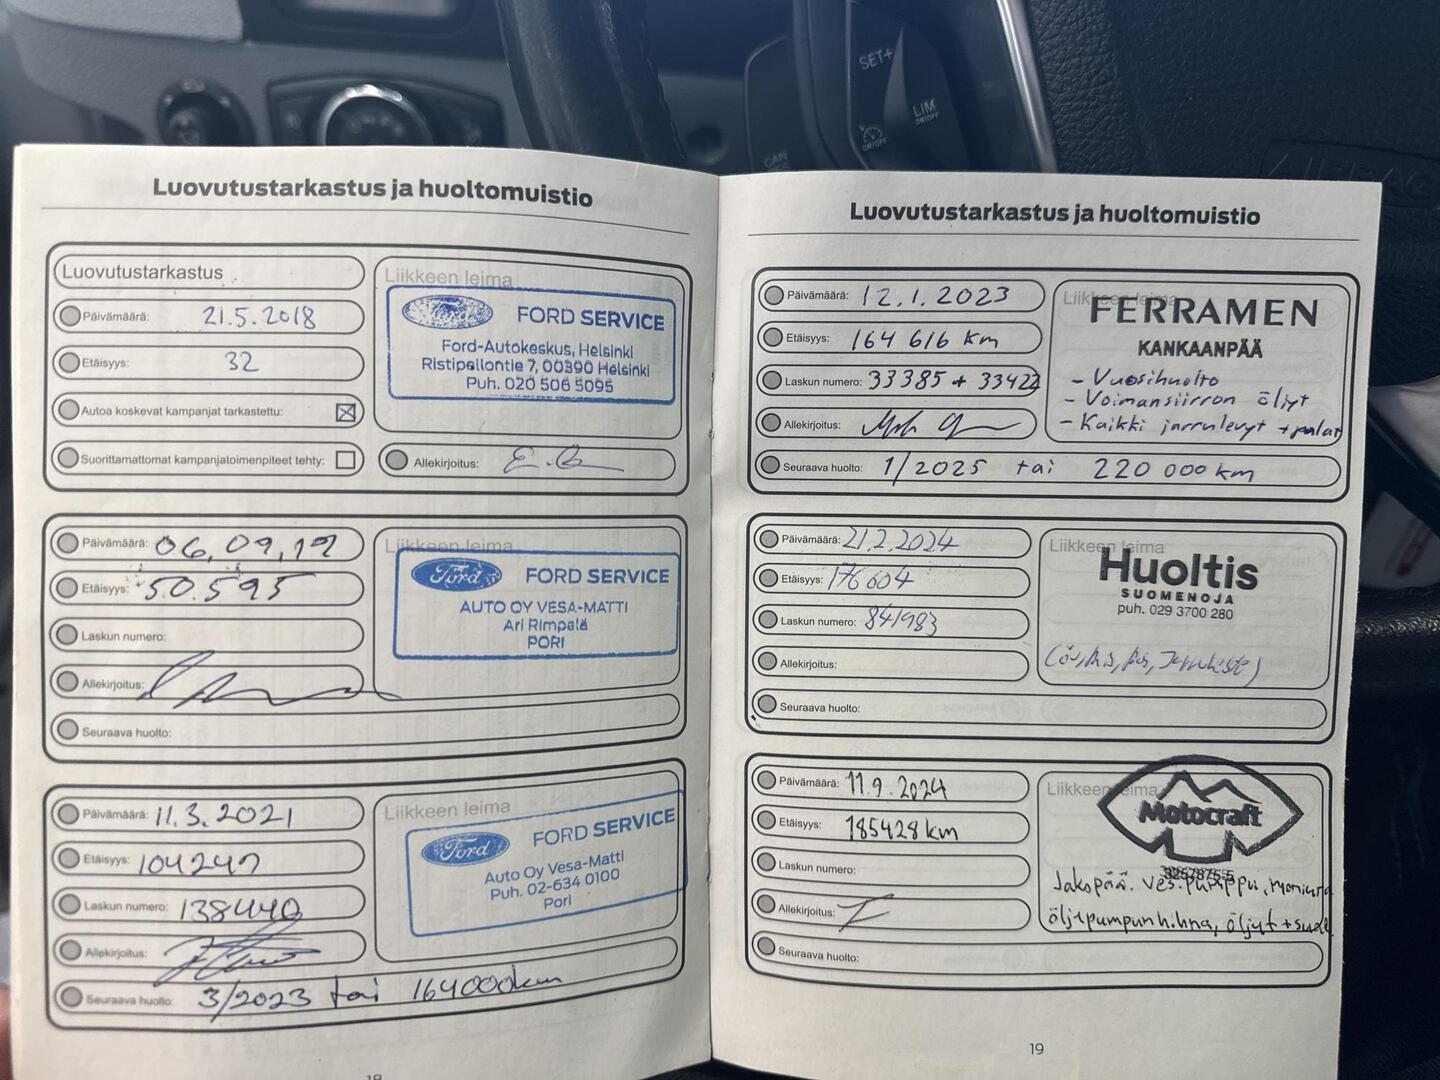 SET+
LIM
ON/OFF
ON/OFF
CAN
Luovutustarkastus ja huoltomuistio
Luovutustarkastus
Päivämäärä: 21.5.2018
Etäisyys: 32
Autoa koskevat kampanjat tarkastettu:
Suorittamattomat kampanjatoimenpiteet tehty:
Liikkeen leima
Ford
FORD SERVICE
Ford-Autokeskus, Helsinki
Ristipellontie 7, 00390 Helsinki
Puh. 020 506 5095
Allekirjoitus:
Päivämäärä: 06,09,19
Etäisyys: 50.595
Laskun numero:
Allekirjoitus:
Seuraava huolto:
Liikkeen leima
Ford
FORD SERVICE
AUTO OY VESA-MATTI
Ari Rimpelä
PORI
Päivämäärä: 11.3.2021
Etäisyys: 104247
Laskun numero: 138440
Allekirjoitus:
Seuraava huolto: 3/2023 tai 164000km
Liikkeen leima
Ford
FORD SERVICE
Auto Oy Vesa-Matti
Puh. 02-634 0100
Pori
18
Luovutustarkastus ja huoltomuistio
Päivämäärä: 12.1.2023
Etäisyys: 164 616 km
Laskun numero: 33385 + 33422
Allekirjoitus:
Seuraava huolto: 1/2025 tai 220 000 km
Liikkeen leima
FERRAMEN
KANKAANPÄÄ
- Vuosihuolto
- Voimansiirron öljyt
- Kaikki jarrulevyt + palat
Päivämäärä: 21.2.2024
Etäisyys: 176604
Laskun numero: 841983
Allekirjoitus:
Seuraava huolto:
Liikkeen leima
Huoltis
SUOMENOJA
puh. 029 3700 280
Päivämäärä: 11.9.2024
Etäisyys: 185428 km
Laskun numero:
Allekirjoitus:
Seuraava huolto:
Liikkeen leima
Motocraft
3257875-5
Jakopää. ves.pumppu,
öljypumpunhihna, öljyt + suod.
19